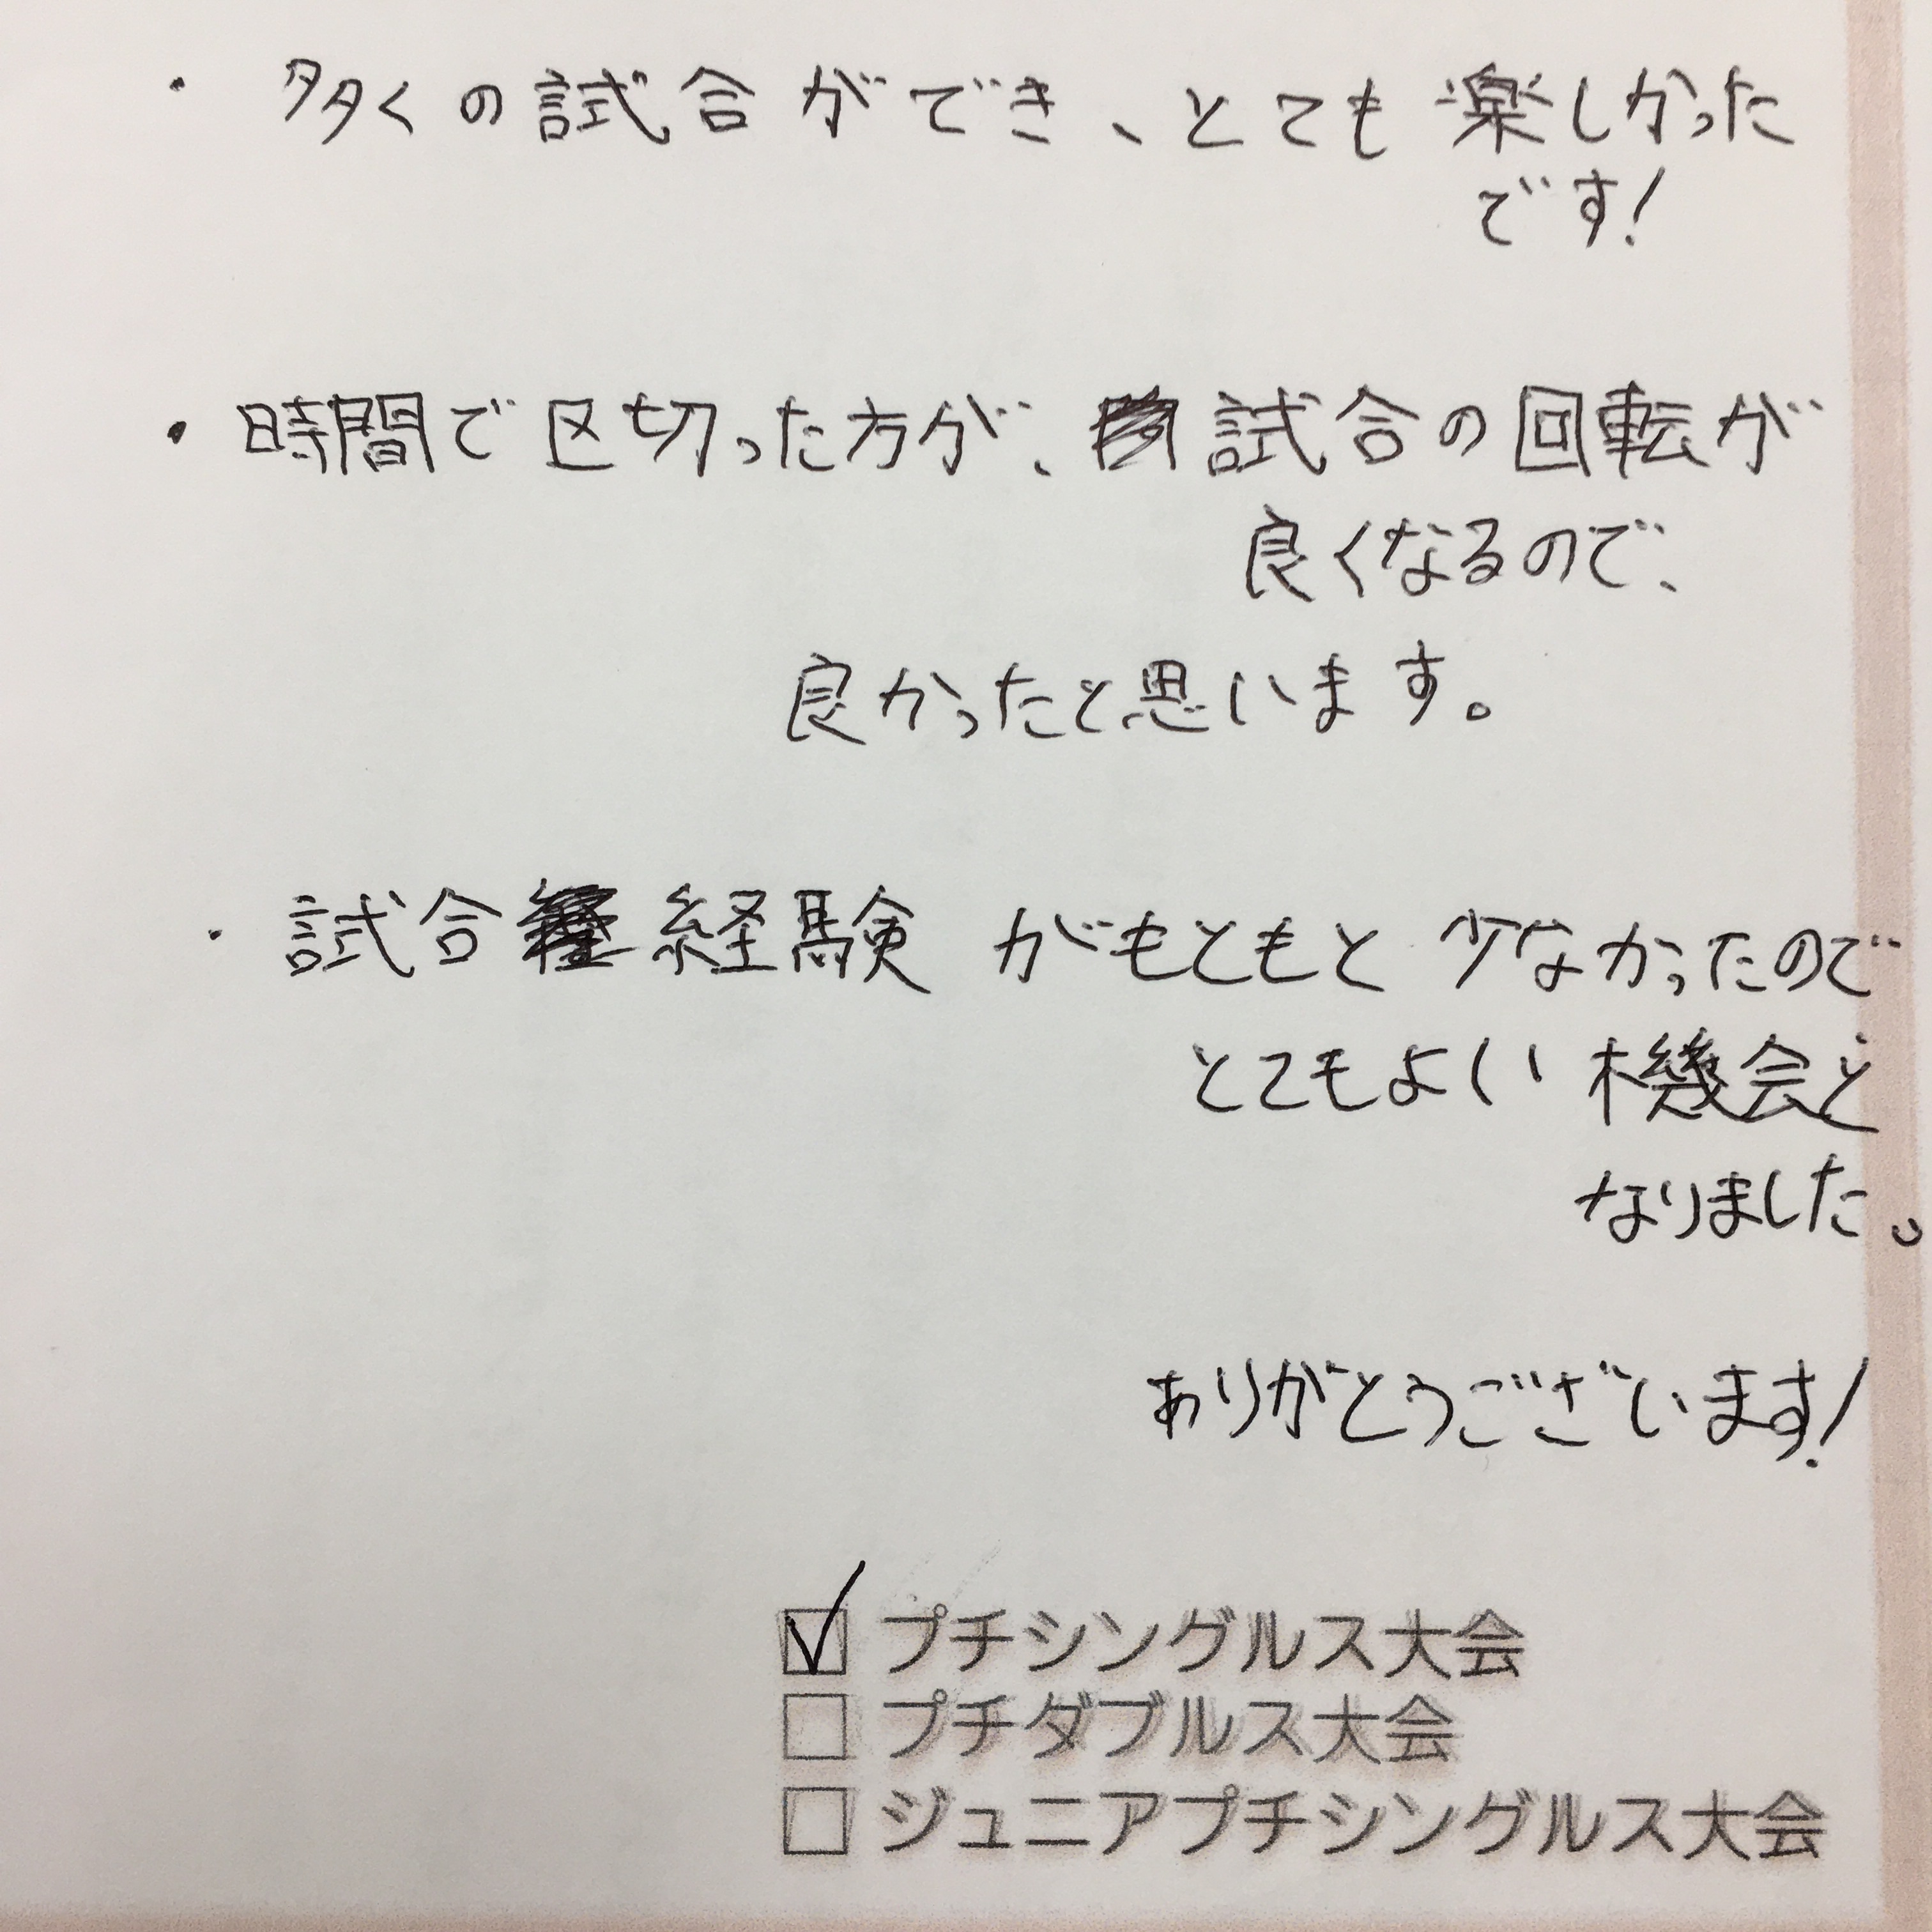 ・多くの試合ができ、とても楽しかった
です!
・時間で区切った方が、試合の回転が
良くなるので、
良かったと思います。
・試合経験がもともと少なかったので
とてもよい機会と
なりました。
ありがとうございます!
☑プチシングルス大会
□プチダブルス大会
□ジュニアプチシングルス大会